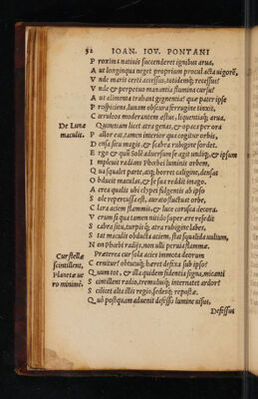 52 IOAN. IOV. PONTANI
P roxima nativis succenderet ignibus arva,
A ut longinqua neget proprium procul acta vigorē,
V nde maris certi accessus, undaeque recursus?
V nde &amp; perpetuo manantia flumina cursu?
A ut alimenta trahant gignentia? que pater ipse
P rospiciens, lunam obscura ferrugine tinxit,
C aeruleos moderantem aestus, loquentiaque arva.
De Lunæ maculis.
Q uinetiam licet atra genas, &amp; opaca per ora
P allor eat, tamen interior qua cogitur orbis,
D ensa situ magis, &amp; scabra rubigine sordet.
E rgo &amp; quū Sole adversum se agit undique, &amp; ipsum
I mplevit radians Phœbei luminis orbem,
Q ua squalet parte, atque horret caligine, densas
O bducit maculas, nec se sua reddit imago.
A erea qualis ubi clypei fulgentis ab ipso
S ole repercussa est, aurato fluctuat orbe,
C lara aciem flammis, &amp; luce corusca decora.
V erum si qua tamen nitido super aere resedit
S cabra situ, turpisque atra rubigine labes,
S tat maculis obducta aciem, stat squalida vultum,
N on Phœbi radijs, non ulli pervia flammæ.
Cur stellæ scintillent, Planetæ vero minime.
Præterea cur sola acies immota deorum
C ernitur obtutuque hæret defixa sub ipso?
Q uum tot, &amp; illa quidem fidentia signa, micanti
S cintillent radio, tremulusque internatet ardor?
S cilicet alta illis regio, sedesque repostæ.
Q uò postquam advenit defessis lumine visus,
Defissus